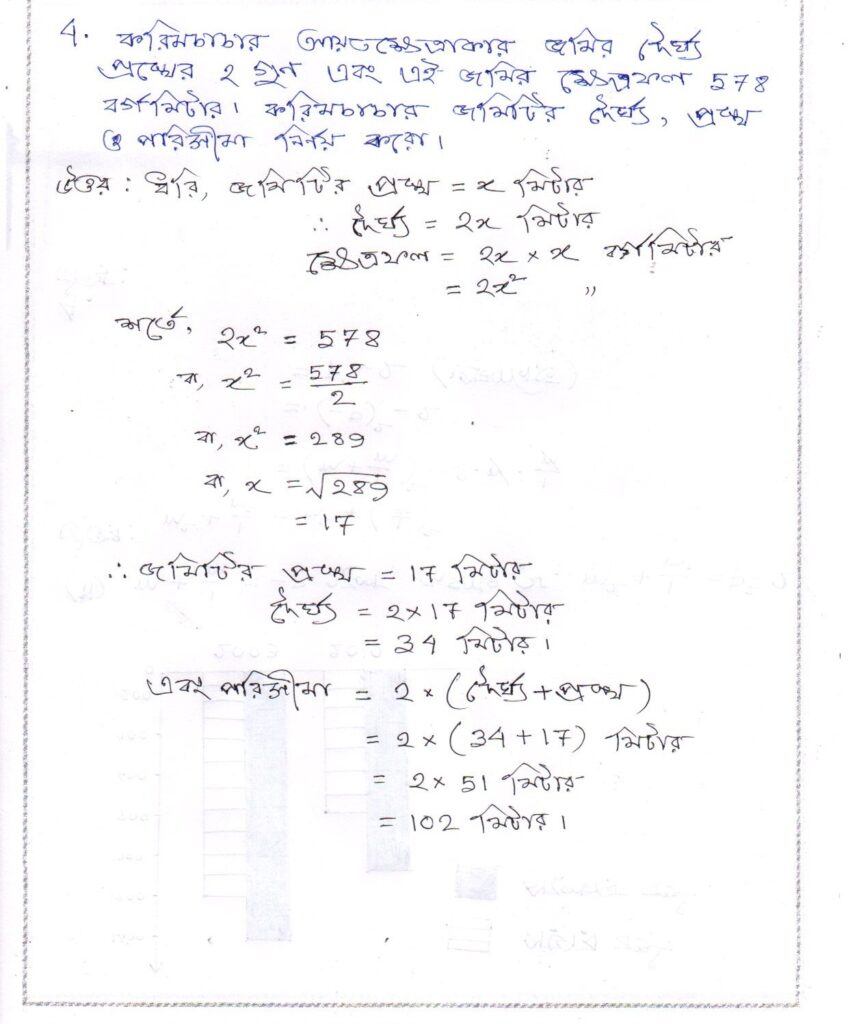 4. করিমচাচার আয়তক্ষেত্রাকার জমির দৈর্ঘ্য
প্রস্থের ২ গুণ এবং এই জমির ক্ষেত্রফল 578
বর্গমিটার। করিমচাচার জমিটির দৈর্ঘ্য, প্রস্থ
ও পরিসীমা নির্ণয় করো।
উত্তর : ধরি, জমিটির প্রস্থ = x মিটার
∴ দৈর্ঘ্য = 2x মিটার
ক্ষেত্রফল = 2x × x বর্গমিটার
= 2x² ,,
শর্তে, 2x² = 578
বা, x² = 578/2
বা, x² = 289
বা, x = √289
= 17
∴ জমিটির প্রস্থ = 17 মিটার
দৈর্ঘ্য = 2×17 মিটার
= 34 মিটার।
এবং পরিসীমা = 2 × (দৈর্ঘ্য + প্রস্থ)
= 2 × (34 + 17) মিটার
= 2 × 51 মিটার
= 102 মিটার।